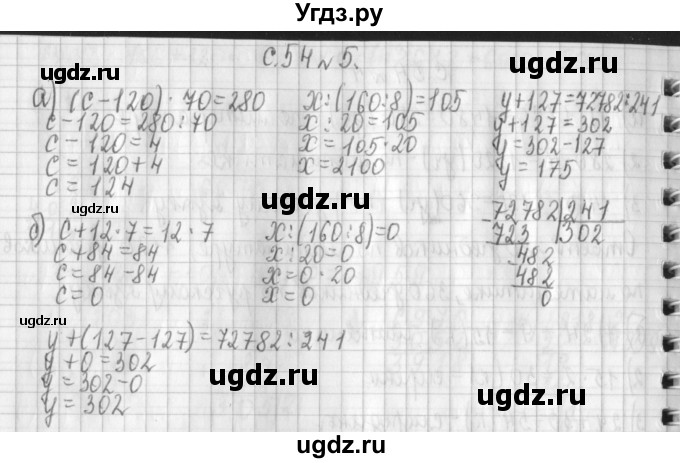 Угдз.ру
с.54 № 5.
а) (c-120) · 70 = 280
c-120 = 280 : 70
c - 120 = 4
c = 120 + 4
c = 124
x : (160:8) = 105
x : 20 = 105
x = 105 · 20
x = 2100
y + 127 = 72782 : 241
y + 127 = 302
y = 302 - 127
y = 175
72782 241
723 302
482
482
0
б) c + 12 · 7 = 12 · 7
c + 84 = 84
c = 84 - 84
c = 0
x : (160:8) = 0
x : 20 = 0
x = 0 · 20
x = 0
y + (127 - 127) = 72782 : 241
y + 0 = 302
y = 302 - 0
y = 302
ugdz.ru
ugdz.ru
ugdz.ru
ugdz.ru
ugdz.ru
ugdz.ru
ugdz.ru
ugdz.ru
ugdz.ru
ugdz.ru
ugdz.ru
ugdz.ru